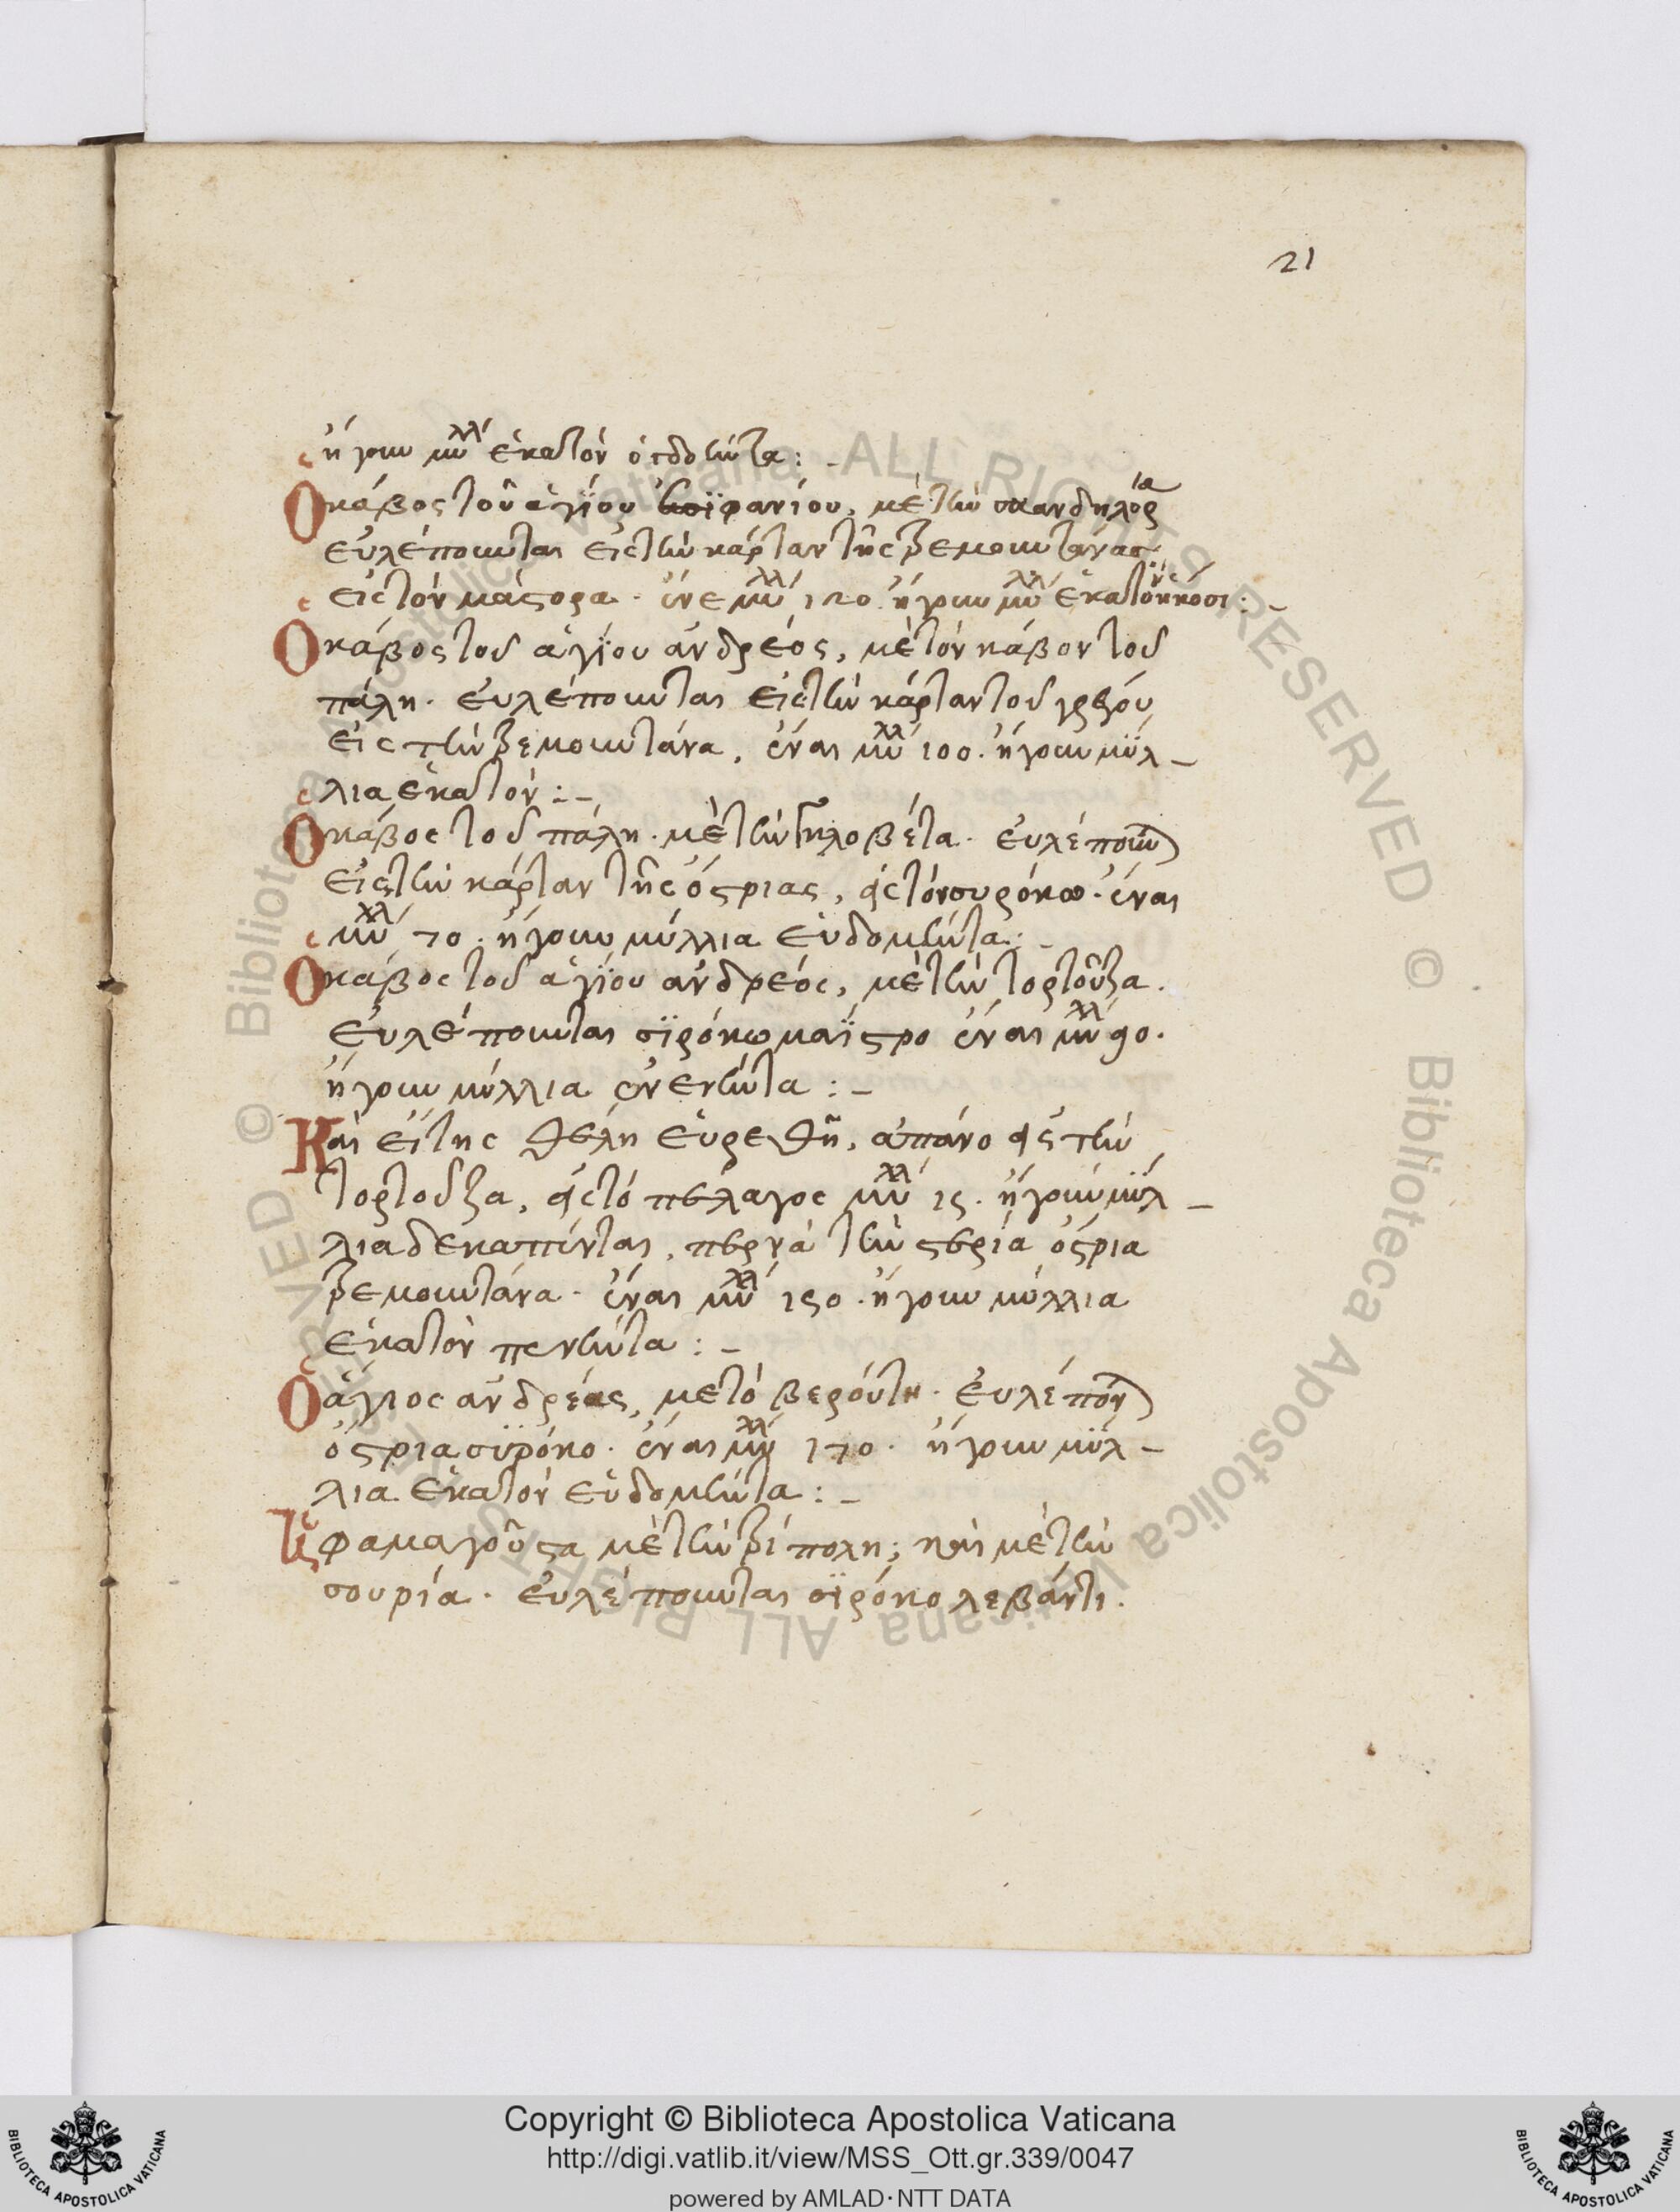 21
ἤγουν μύλλ ἑκατόν ὀγδοήντα:
Ὁ κάβος τοῦ ἁγΐου φανίου, μὲ τὴν
εὐλέπουνται εἰς τὴν κάρταν τῆς τρεμουντάνας
εἰς τόν μάστορα. ἔνε μύλλ 120. ἤγουν μύλλ ἑκατόν ἤκοσι:
Ὁ κάβος τοῦ ἁγΐου ἀνδρέος, μὲ τόν κάβον τοῦ
πάλη. εὐλέπουνται εἰς τὴν κάρταν τοῦ γρέγου
εἰς τὴν τρεμουντάνα, ἔναι μύλλ 100. ἤγουν μΰλ-
λια ἑκατόν:-
Ὁ κάβος τοῦ πάλη. μὲ τὴν εὐλέπουν
εἰς τὴν κάρταν τῆς ὄστριας, εἰς τόν συρόκω. ἔναι
μύλλ 70. ἤγουν μύλλια εὐδομήντα:-
Ὁ κάβος τοῦ ἁγΐου ἀνδρέος, μὲ τὴν τορτοῦζα.
εὐλέπουνται σϊρόκω μαΐστρο ἔναι μύλλ 90.
ἤγουν μύλλια ἐνενήντα:-
Καὶ εἴ της θέλη εὑρεθῆ, ἀπάνο εἰς τὴν
τορτοῦζα, εἰς τό πέλαγος μύλλ 15. ἤγουν μΰλ-
λια δεκαπένται, περνά τὴν στερίά ὄστρια
τρεμουντάνα. ἔναι μύλλ 150. ἤγουν μύλλια
ἑκατόν πενήντα:-
Ὁ ἅγιος ἀνδρέας, με τό βερούτη. εὐλέπουν
ὄστρια σϋρόκο. ἔναι μύλλ 170. ἤγουν μΰλ-
λια ἑκατόν εὐδομήντα:-
Ἡ φαμαγοῦστα μὲ τὴν τρίπολη; καὶ μὲ τὴν
σουρία. εὐλέπουνται σϊρόκο λεβάντι.
Copyright © Biblioteca Apostolica Vaticana
http://digi.vatlib.it/view/MSS_Ott.gr.339/0047
powered by AMLAD·NTT DATA
BIBLIOTECA APOSTOLICA VATICANA
BIBLIOTECA APOSTOLICA VATICANA